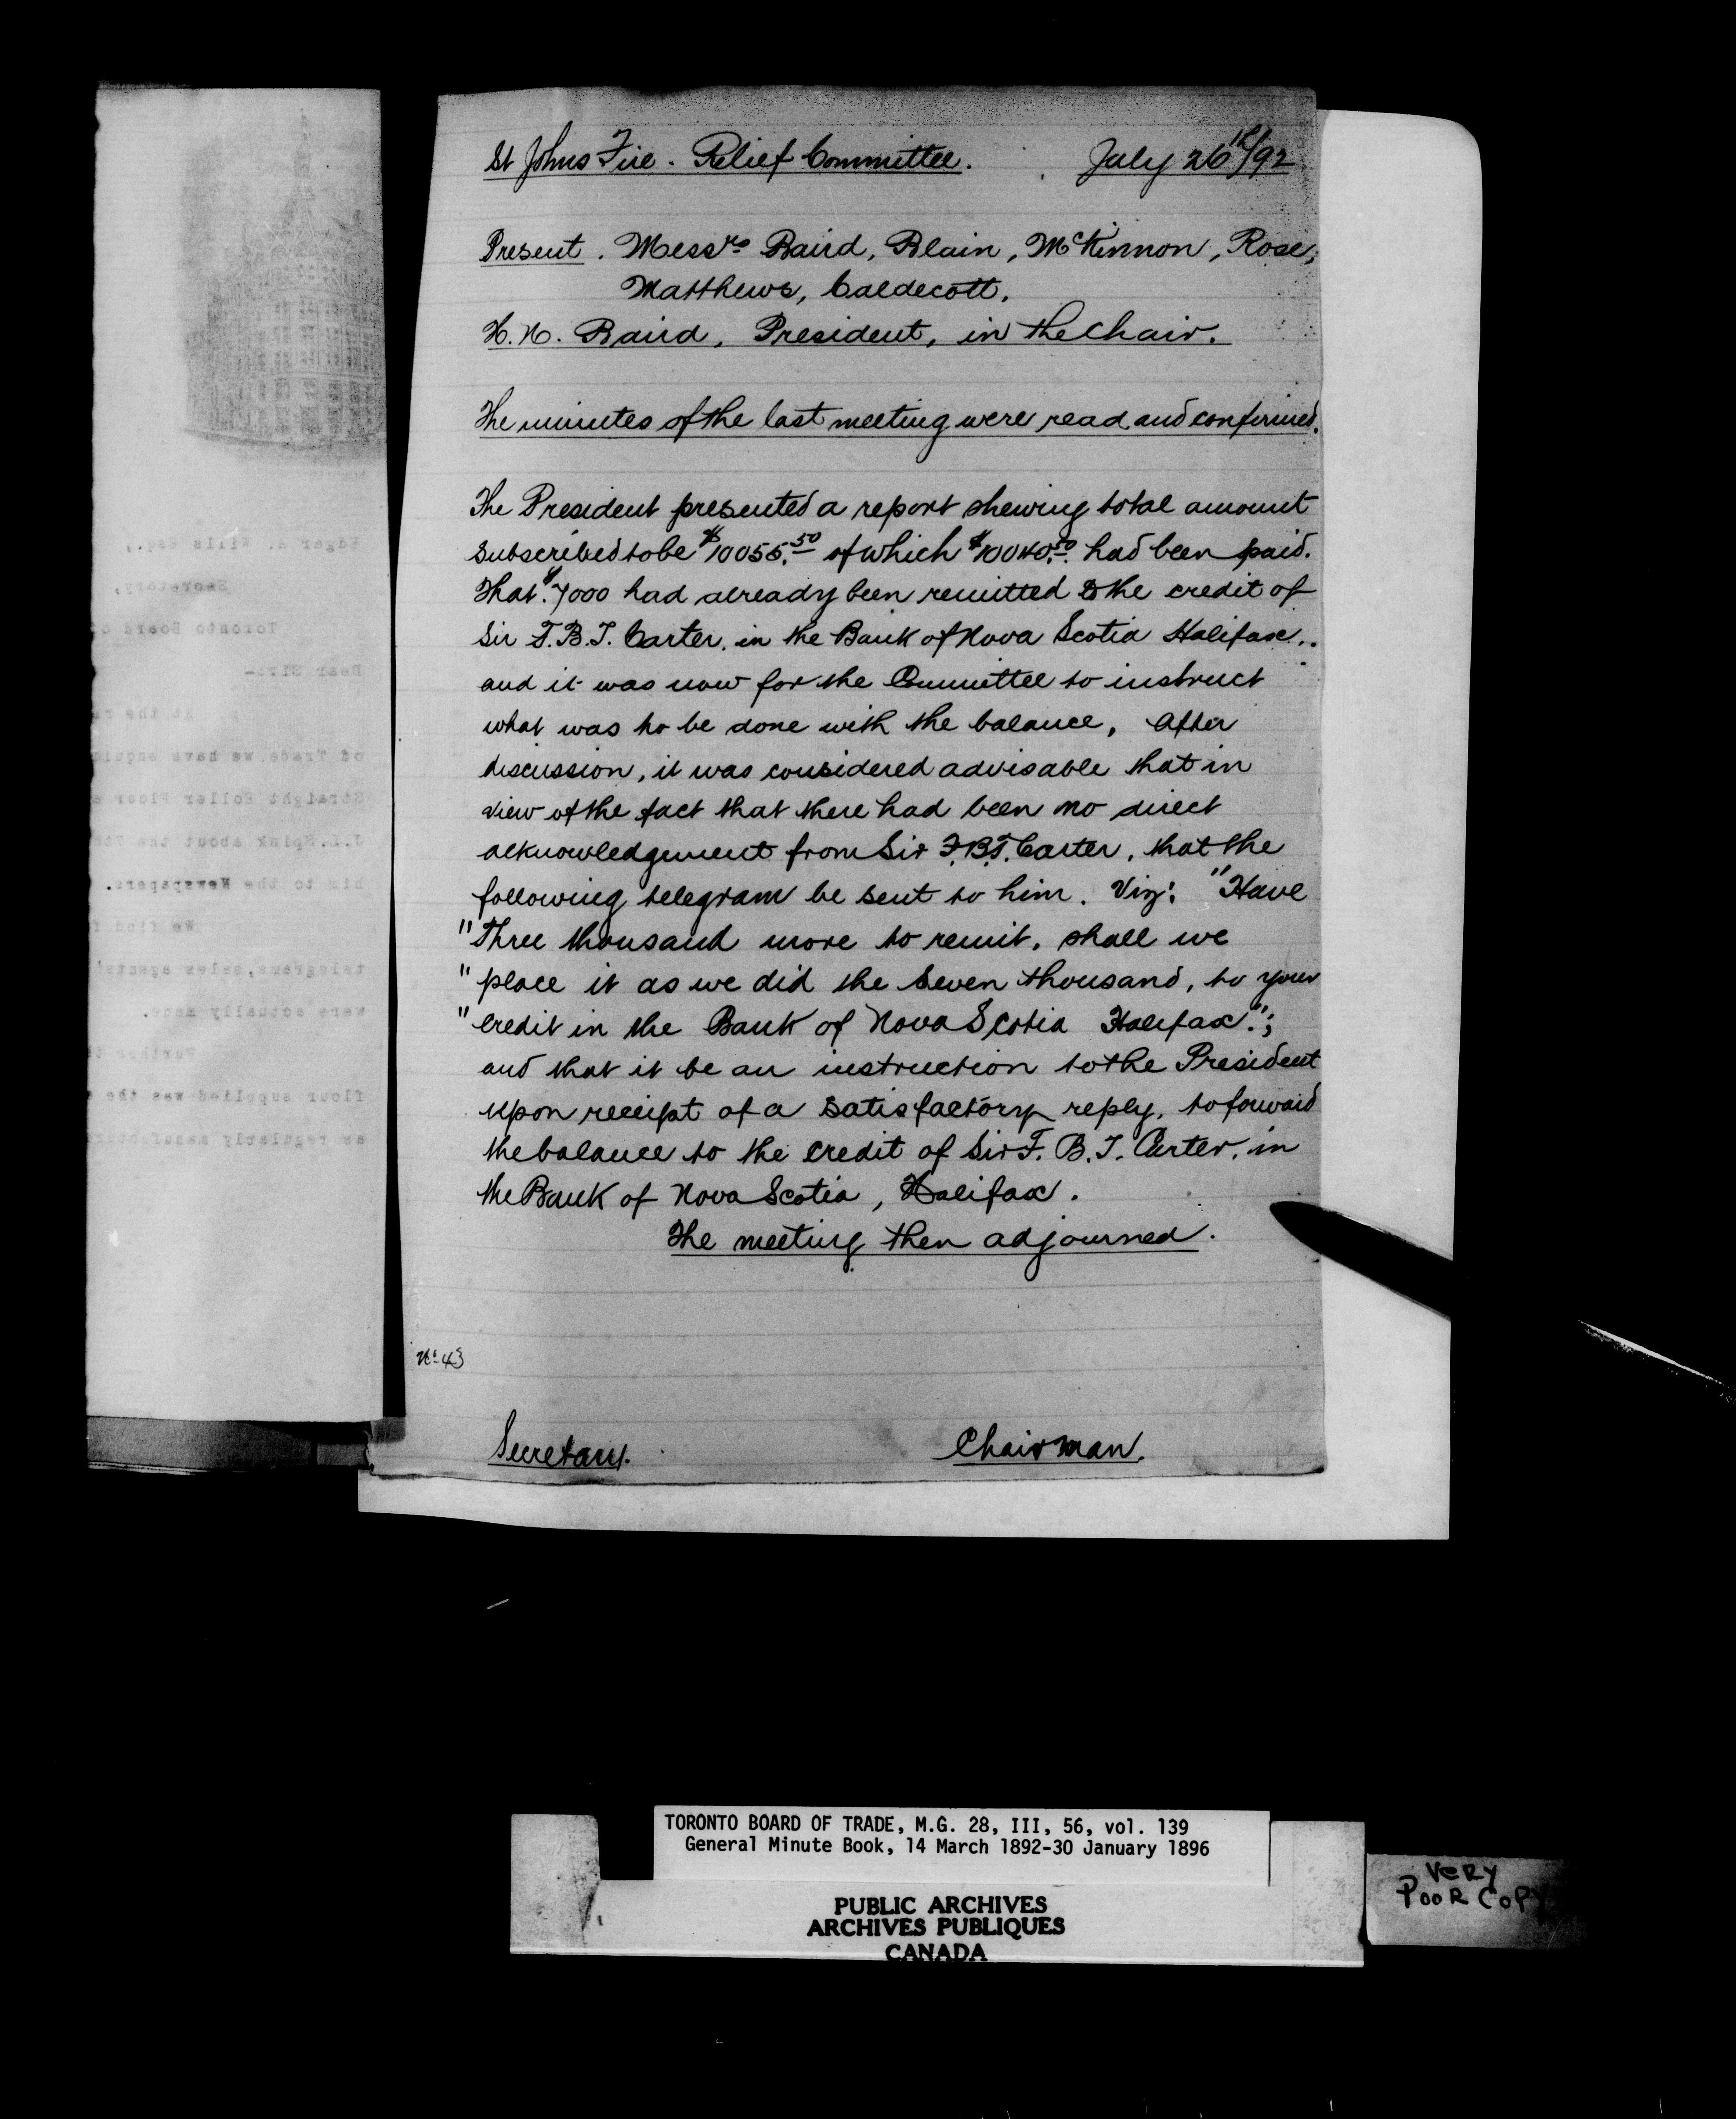 St Johns Fire. Relief Committee. July 26th/92
Present. Messrs Baird, Blain, McKinnon, Rose,
Matthews, Caldecott.
H. N. Baird, President, in the chair.
The minutes of the last meeting were read and confirmed.
The President presented a report shewing total amount
subscribed to be $10055.50 of which $10040.50 had been paid.
That $7000 had already been remitted to the credit of
Sir F. B. T. Carter, in the Bank of Nova Scotia Halifax..
and it was now for the Committee to instruct
what was to be done with the balance, After
discussion, it was considered advisable that in
view of the fact that there had been no direct
acknowledgement from Sir F.B.T. Carter, that the
following telegram be sent to him. Viz: "Have
"Three thousand more to remit, shall we
"place it as we did the seven thousand, to your
"credit in the Bank of Nova Scotia Halifax.";
and that it be an instruction to the President
upon receipt of a satisfactory reply, to forward
the balance to the credit of Sir F. B. T. Carter, in
the Bank of Nova Scotia, Halifax.
The meeting then adjourned.
No 43
Secretary. Chairman.
Edgar A. Wills Esq.,
Secretary,
Toronto Board o
Dear Sir:-
At the re
of Trade we have enqui
Straight Roller Flour
J.L.Spink about the 7th
him to the Newspapers.
We find
telegrams, sales agents'
were actually made.
Further
flour supplied was the
as regularly manufactur
TORONTO BOARD OF TRADE, M.G. 28, III, 56, vol. 139
General Minute Book, 14 March 1892-30 January 1896
PUBLIC ARCHIVES
ARCHIVES PUBLIQUES
CANADA
VERY
POOR COPY